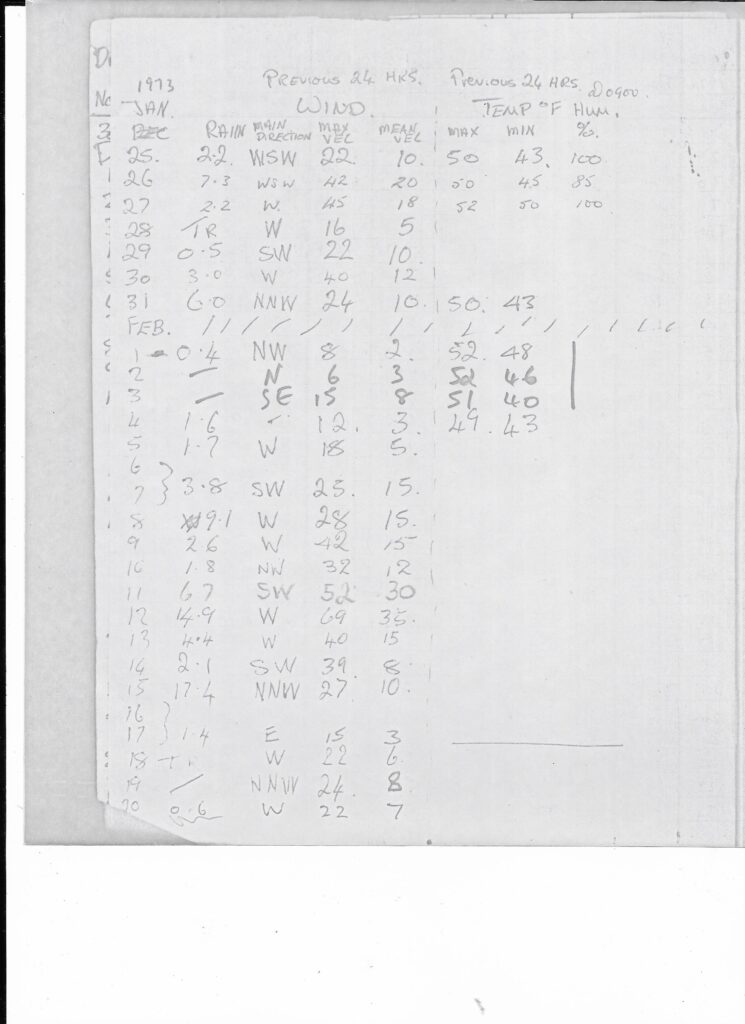 1973 PREVIOUS 24 HRS. Previous 24 HRS @0900.
No JAN. WIND. TEMP °F HUM.
DEC RAIN MAIN DIRECTION MAX VEL MEAN VEL MAX MIN %.
25. 2.2. WSW 22. 10. 50 43. 100
26 7.3 WSW 42 20 50 45 85
27 2.2 W. 45 18 52 50 100
28 TR W 16 5
29 0.5 SW 22 10.
30 3.0 W 40 12
31 6.0 NNW 24 10. 50. 43
FEB. / / / / / / / / / / / / / / / / / /
1 - 0.4 NW 8 2. 52. 48
2 — N 6 3 52 46
3 — SE 15 8 51 40
4 1.6 - 12. 3. 49. 43
5 1.7 W 18 5.
6 }
7 } 3.8 SW 25. 15.
8 9.1 W 28 15.
9 2.6 W 42 15
10 1.8 NW 32 12
11 6.7 SW 52 30
12 14.9 W 69 35.
13 4.4 W 40 15
14 2.1 SW 39 8.
15 17.4 NNW 27. 10.
16 }
17 } 1.4 E 15 3
18 TR W 22 6.
19 / NNW 24. 8
20 0.6 W 22 7